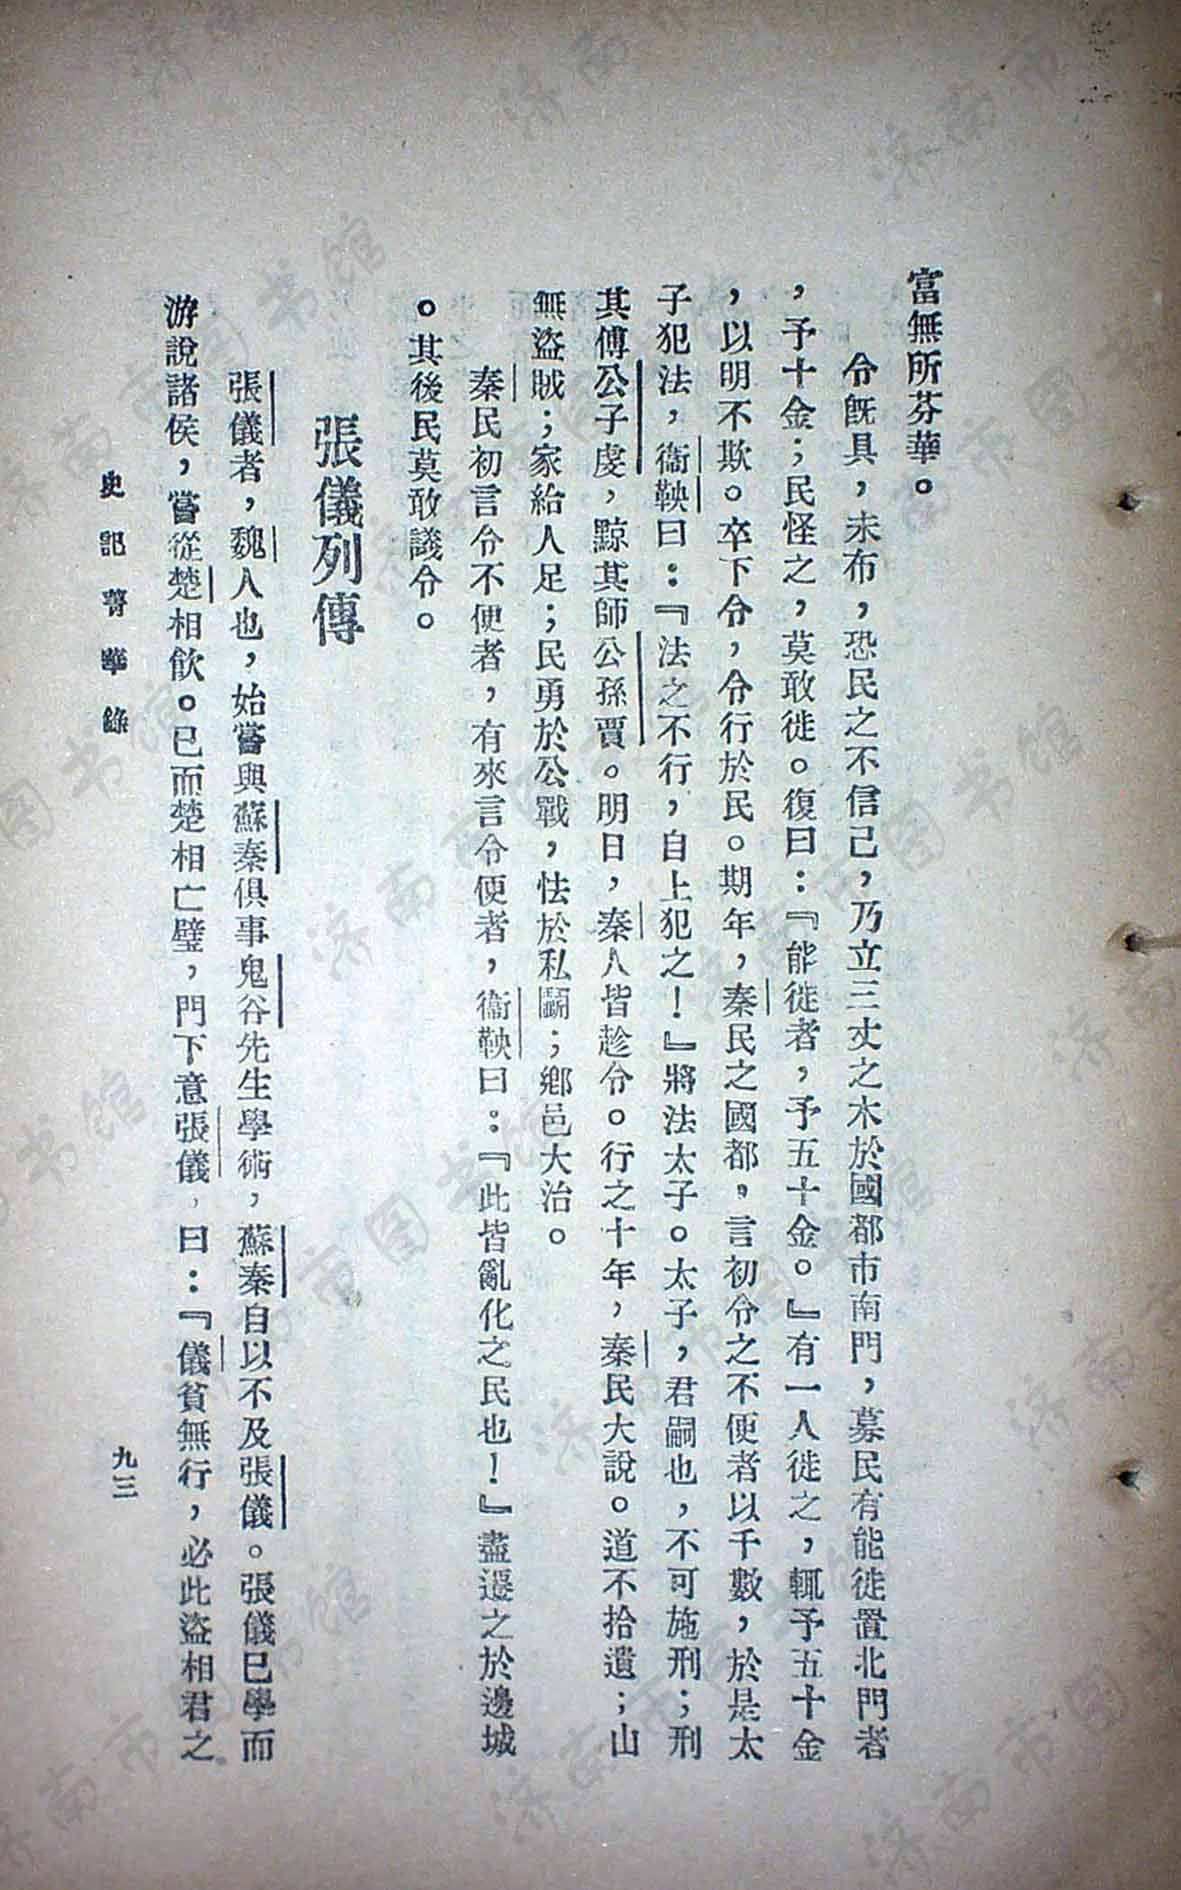 富無所芬華。
令旣具，未布，恐民之不信己，乃立三丈之木於國都市南門，募民有能徙置北門者
，予十金；民怪之，莫敢徙。復曰：『能徙者，予五十金。』有一人徙之，輒予五十金
，以明不欺。卒下令，令行於民。期年，秦民之國都，言初令之不便者以千數，於是太
子犯法，衞鞅曰：『法之不行，自上犯之！』將法太子。太子，君嗣也，不可施刑；刑
其傅公子虔，黥其師公孫賈。明日，秦人皆趁令。行之十年，秦民大說。道不拾遺；山
無盜賊；家給人足；民勇於公戰，怯於私鬬；鄉邑大治。
秦民初言令不便者，有來言令便者，衞鞅曰：『此皆亂化之民也！』盡遷之於邊城
。其後民莫敢議令。
張儀列傳
張儀者，魏人也，始嘗與蘇秦俱事鬼谷先生學術，蘇秦自以不及張儀。張儀已學而
游說諸侯，嘗從楚相飲。已而楚相亡璧，門下意張儀，曰：『儀貧無行，必此盜相君之
史記菁華錄
九三
济南市图书馆